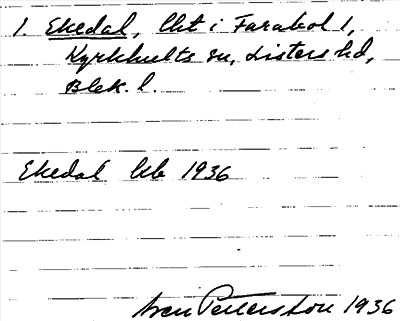 1. Ekedal, lht i Farabol 1,
Kyrkhults sn, Listers hd,
Blek. l.
Ekedal lib 1936
Sven Petersson 1936